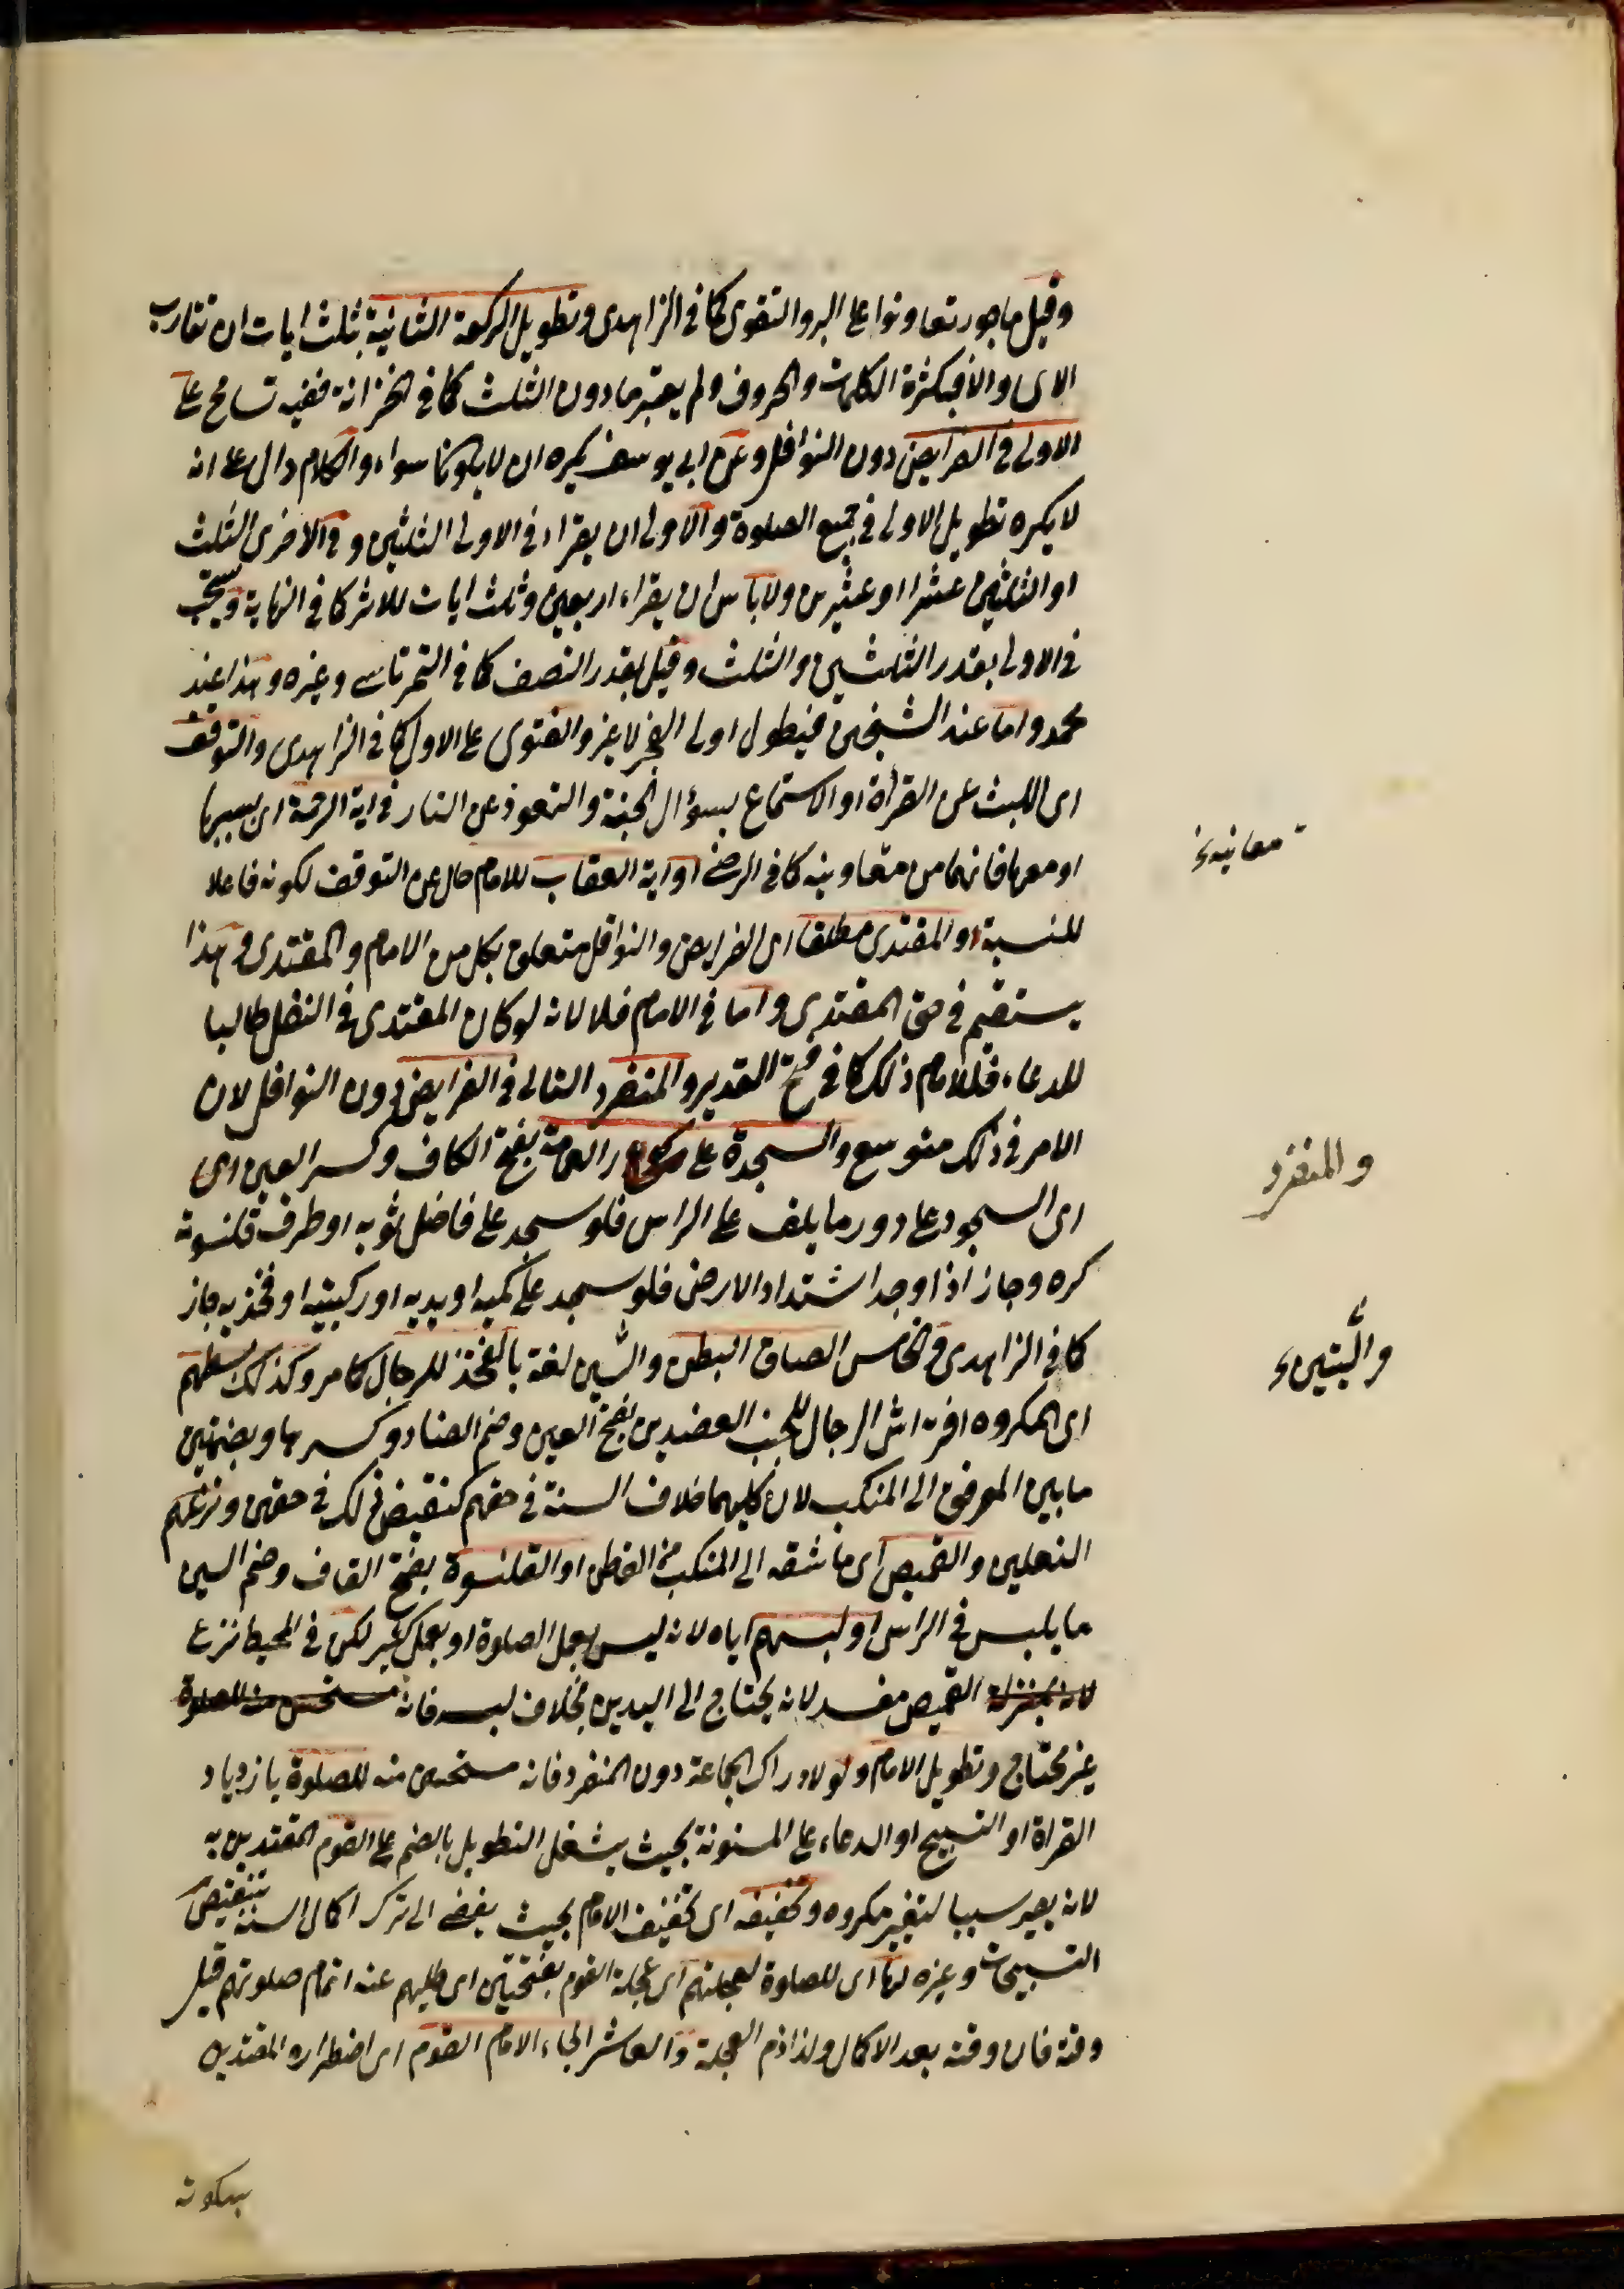 وقيل ماجور تعاونوا على البر والتقوى كما في الزاهدى وتطويل الركعة الثانية بثلث ايات ان تقارب
الاى والا فبكثرة الكلمات والحروف ولم يعتبر ما دون الثلث كما في الخزانة ففيه تسامح على
الاولى في الفرايض دون النوافل وعن ابى يوسف يكره ان لا يكونا سواء والكلام دال على انه
لا يكره تطويل الاولى في جميع الصلوة والاولى ان يقراء في الاولى الثلثين و في الاخرى الثلث
او الثلثين عشرا او عشرين ولا باس ان يقراء اربعين وثلث ايات للاثر كما في النهاية ويستحب
في الاولى بقدر الثلثين والثلث وقيل بقدر النصف كما في التمرتاشى وغيره وهذا عند
محمد واما عند الشيخين فيطول اولى الفجر لا غير والفتوى على الاول كما في الزاهدى والتوقف
اى اللبث عن القراة او الاستماع بسؤال الجنة والتعوذ عن النار في اية الرحمة اى بسببها
او معها فانها من معاونيه كما في الرضى او اية العقاب للامام حال عن التوقف لكونه فاعلا
للنسبة والمقتدى مطلقا اى الفرايض والنوافل متعلق بكل من الامام والمقتدى وهذا
يستقيم في حق المقتدى واما في الامام فلا لانه لو كان المقتدى في النفل طالبا
للدعاء فللامام ذلك كما في فتح القدير والمنفرد التالى في الفرايض دون النوافل لان
الامر في ذلك متوسع والسجدة على كور العمامة بفتح الكاف وكسر العين اى
اى السجود على دور ما يلف على الراس فلو سجد على فاضل ثوبه او طرف قلنسوته
كره وجاز اذا وجد اشتداد الارض فلو سجد على كميه او يديه او ركبتيه او فخذيه جاز
كما في الزاهدى والخامس الصاق البطن والشين لغة بالفخذ للرجال كما مر وكذلك بسطهم
اى المكروه افتراش الرجال للجنب العضدين بفتح العين وضم الضاد وكسرها وبضمتين
ما بين المرفق الى المنكب لان كليهما خلاف السنة في حقهم كنقيض ذلك في حقهن ونزعهم
النعلين والقميص اى ما شقه الى المنكب من القطن او القلنسوة بفتح القاف وضم السين
ما يلبس في الراس او لبسهم اياه لانه ليس بعمل الصلوة او بعمل كثير لكن في المحيط نزع
القميص مفسد لانه يحتاج الى اليدين بخلاف لبسه فانه
غير محتاج وتطويل الامام ولو لادراك الجماعة دون المنفرد فانه مستحسن منه للصلوة بازدياد
القراة او التسبيح او الدعاء على المسنونة بحيث يشغل التطويل بالضم على القوم المقتدين به
لانه يصير سببا لتنفير مكروه وتخفيفه اى تخفيف الامام بحيث يفضى الى ترك اكمال السنة بتنقيص
التسبيحات وغيره لها اى للصلوة لعجلتهم اى عجلة القوم بفتحتين اى طلبهم عنه اتمام صلوتهم قبل
وقته فان وقته بعد الاكمال ولذا ذم العجلة والعاشر الجاء الامام القوم اى اضطراره المقتدين
معانيه
والمنفرد
والبتين
بسكوته